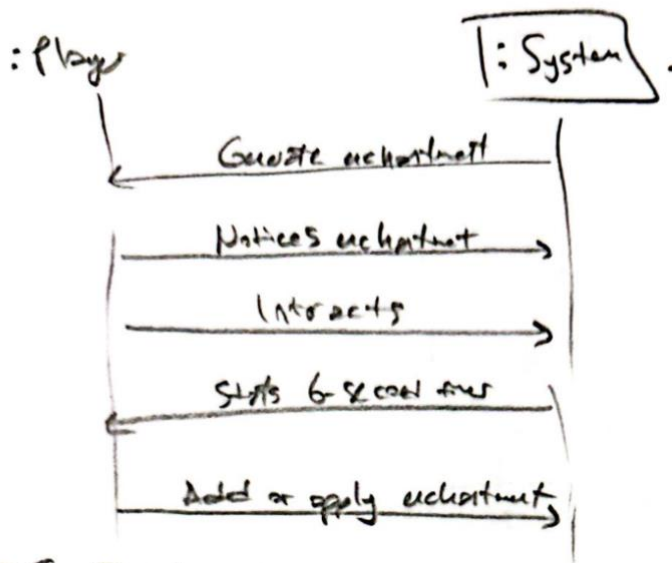 :Player
:System
Generate enchantment
Notices enchantment
Interacts
Starts 6-second timer
Add or apply enchantment